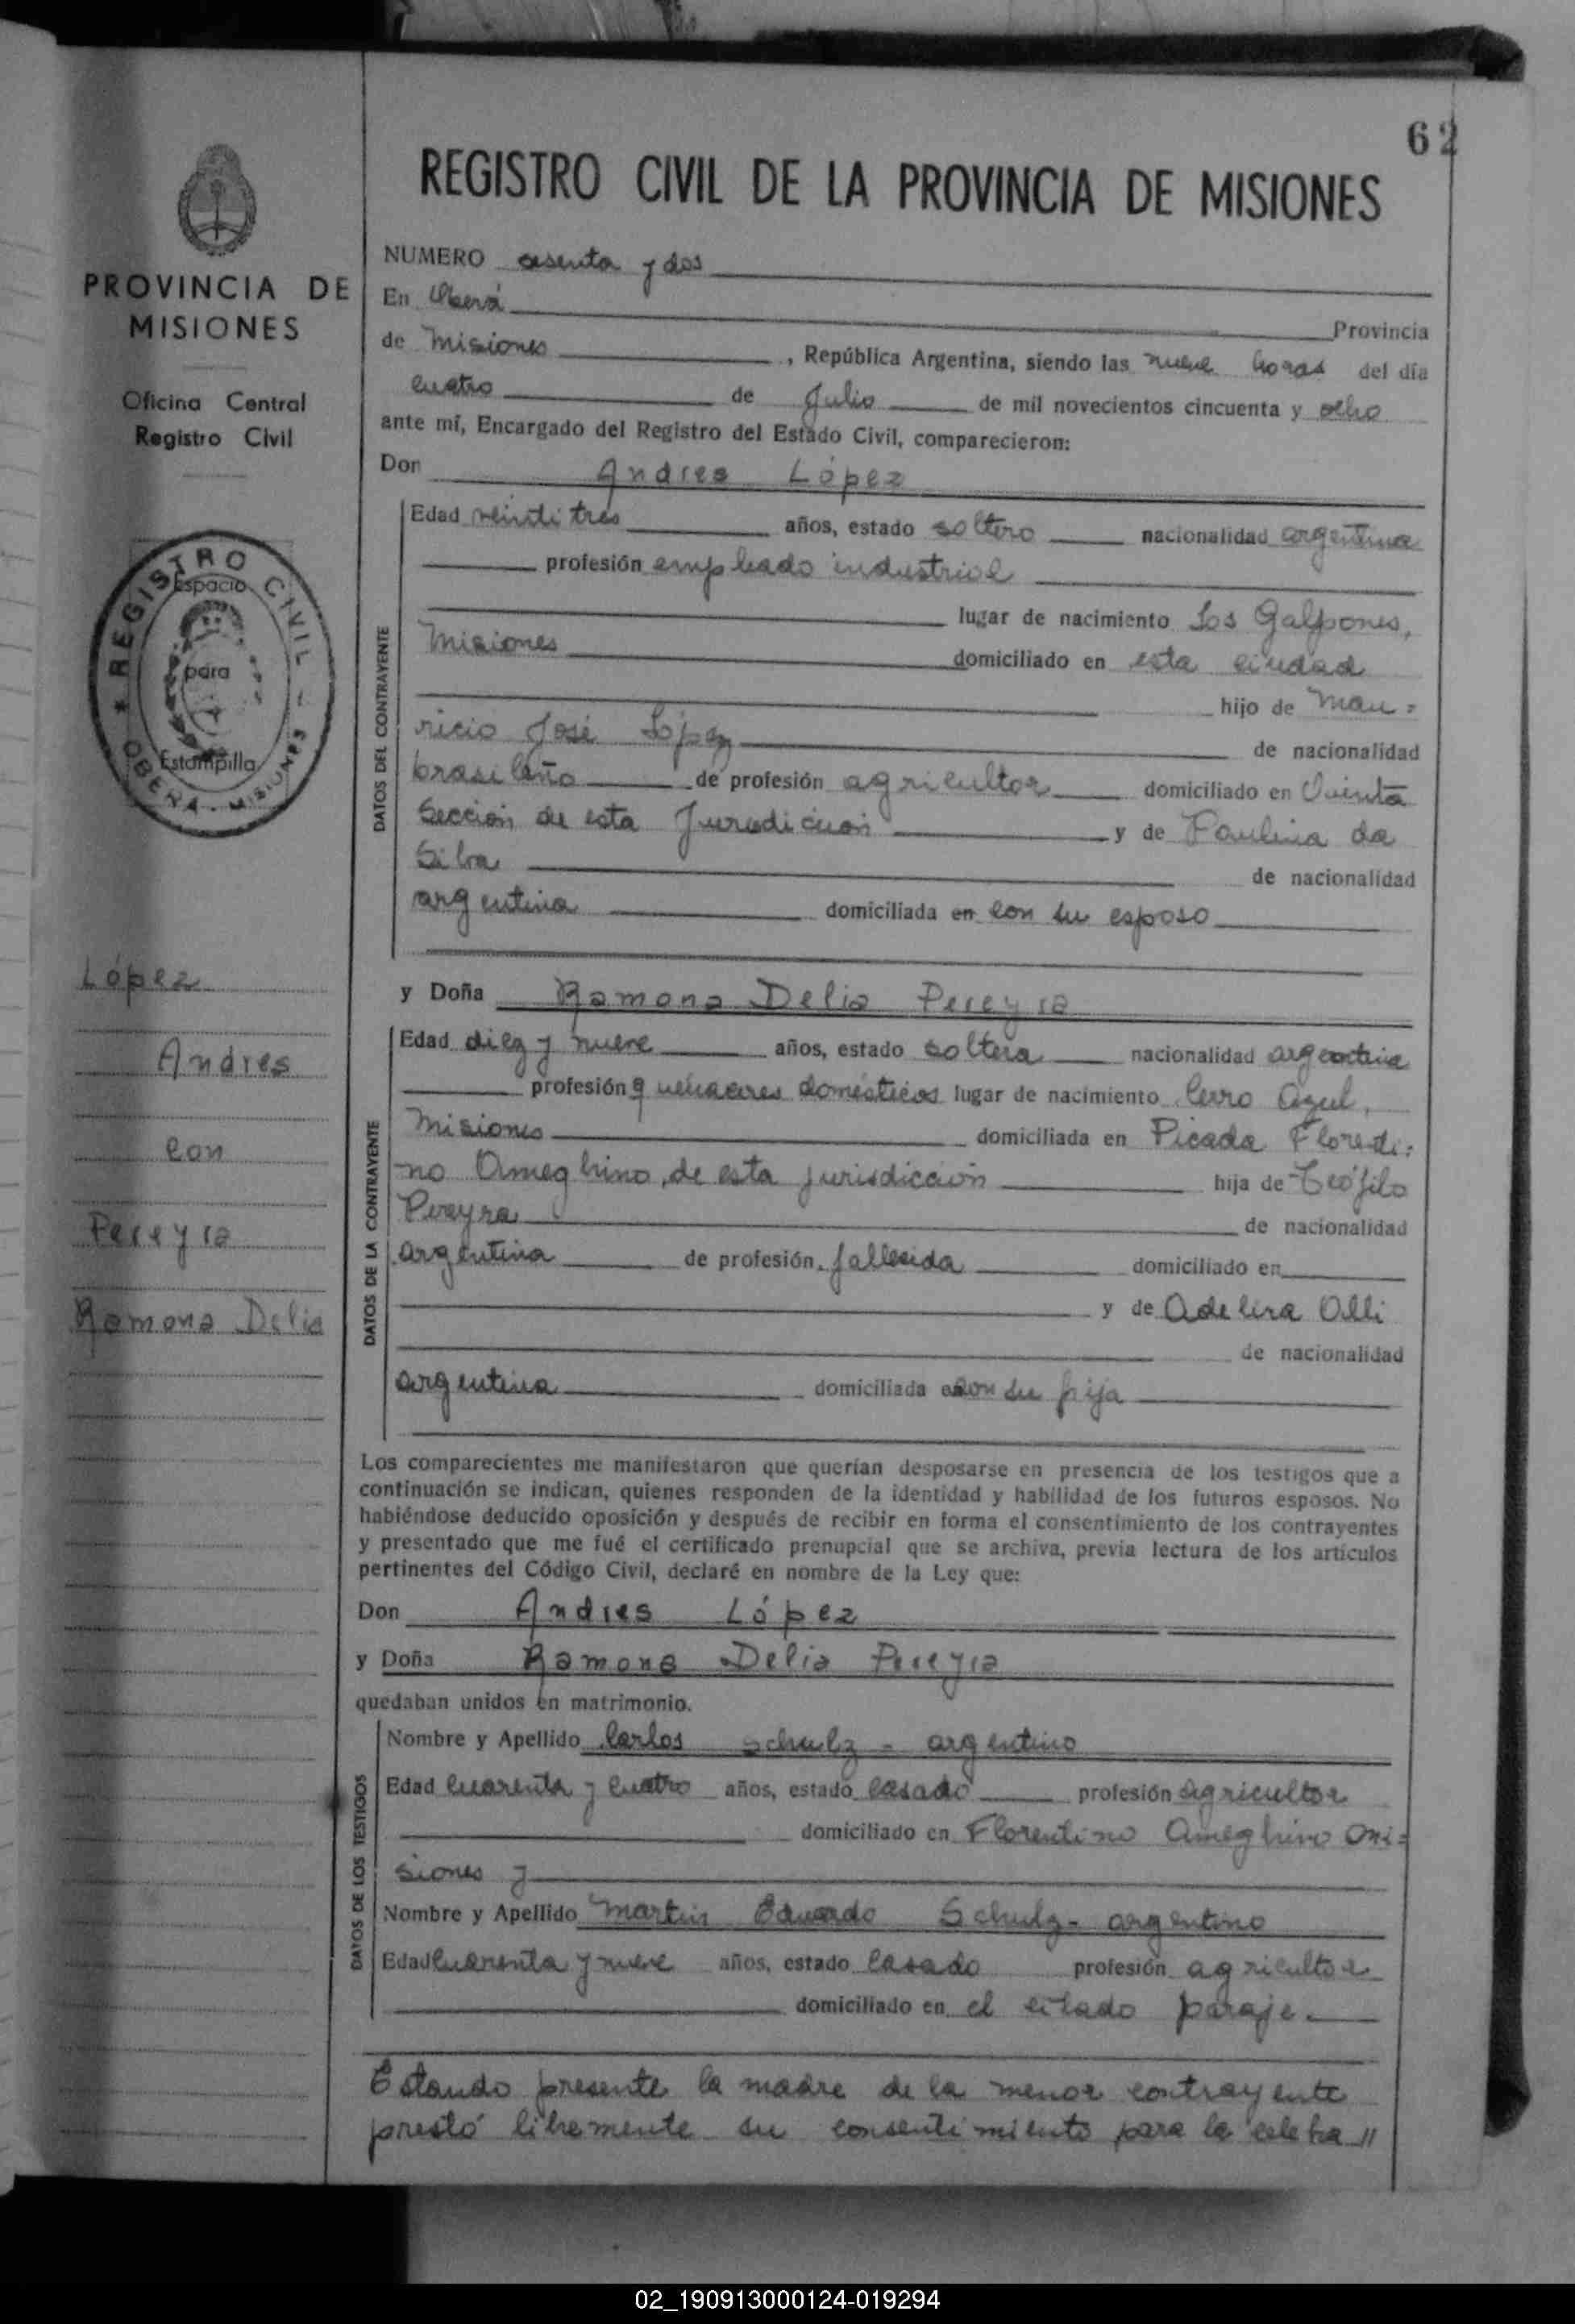 62
REGISTRO CIVIL DE LA PROVINCIA DE MISIONES
PROVINCIA DE
MISIONES
Oficina Central
Registro Civil
REGISTRO CIVIL - OBERA - MISIONES
Espacio
para
Estampilla
López
Andres
con
Pereyra
Ramona Delia
NUMERO sesenta y dos
En Oberá Provincia
de Misiones, República Argentina, siendo las nueve horas del día
cuatro de Julio de mil novecientos cincuenta y ocho
ante mí, Encargado del Registro del Estado Civil, comparecieron:
Don Andres López
DATOS DEL CONTRAYENTE
Edad veinti tres años, estado soltero nacionalidad argentina
profesión empleado industrial
lugar de nacimiento Los Galpones,
Misiones domiciliado en esta ciudad
hijo de Mau=
ricio José López de nacionalidad
brasileño de profesión agricultor domiciliado en Quinta
Sección de esta Jurisdiccion y de Paulina da
Silva de nacionalidad
argentina domiciliada en con su esposo
y Doña Ramona Delia Pereyra
DATOS DE LA CONTRAYENTE
Edad diez y nueve años, estado soltera nacionalidad argentina
profesión quehaceres domésticos lugar de nacimiento Cerro Azul,
Misiones domiciliada en Picada Florenti=
no Ameghino, de esta jurisdicción hija de Teófilo
Pereyra de nacionalidad
argentina de profesión fallecida domiciliado en
y de Adelina Olli
de nacionalidad
argentina domiciliada con su hija
Los comparecientes me manifestaron que querían desposarse en presencia de los testigos que a
continuación se indican, quienes responden de la identidad y habilidad de los futuros esposos. No
habiéndose deducido oposición y después de recibir en forma el consentimiento de los contrayentes
y presentado que me fué el certificado prenupcial que se archiva, previa lectura de los artículos
pertinentes del Código Civil, declaré en nombre de la Ley que:
Don Andres López
y Doña Ramona Delia Pereyra
quedaban unidos en matrimonio.
DATOS DE LOS TESTIGOS
Nombre y Apellido Carlos Schulz - argentino
Edad cuarenta y cuatro años, estado casado profesión agricultor
domiciliado en Florentino Ameghino Mi=
siones y
Nombre y Apellido Martin Eduardo Schulz - argentino
Edad cuarenta y nueve años, estado casado profesión agricultor
domiciliado en el citado paraje.
Estando presente la madre de la menor contrayente
prestó libremente su consentimiento para la celebra //
02_190913000124-019294